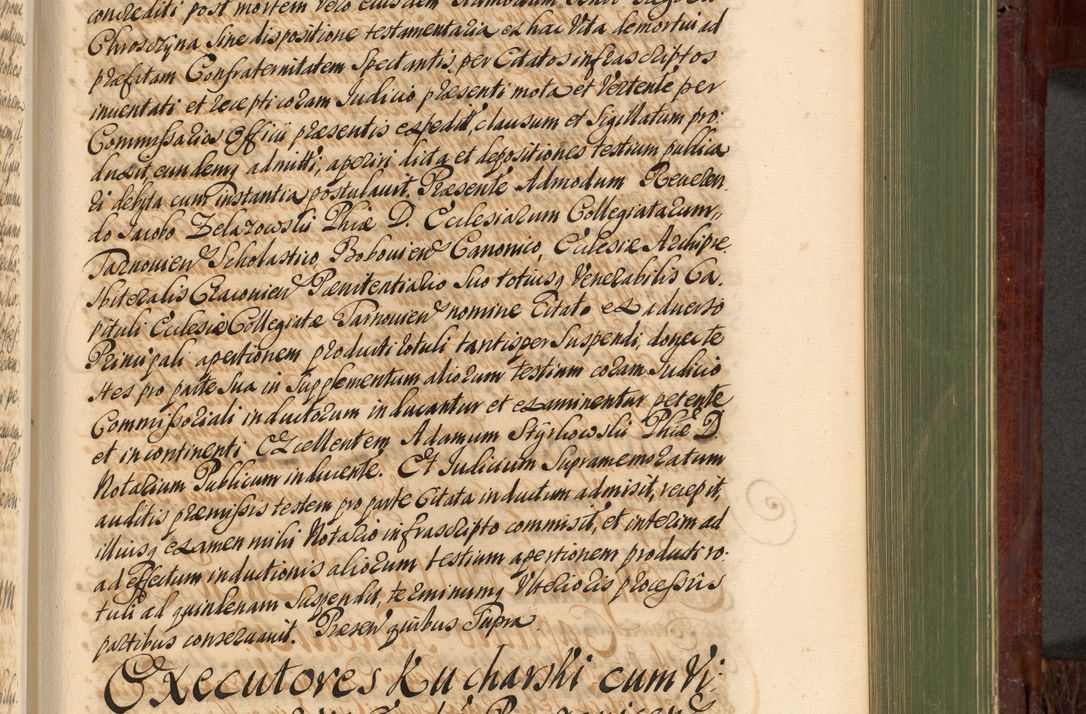 concrediti post mortem vero eiusdem
Chroszyna sine dispositione testamentaria ex hac vita demortui ad
præfatam Confraternitatem Spectantis, per Citatos infrascriptos
inventati et recepti coram Judicio præsenti mota et vertente per
Commissarios Officii præsentis expedit, clausum et Sigillatum pro:
duxit, eundemq admitti, aperiri dicta et depositiones testium publica
ri debita cum instantia postulavit. Præsente Admodum Reveren,
do Jacobo Zelazowski Phiæ D. Ecclesiarum Collegiatarum,,
Tarnovien Scholastico, Bobovien Canonico, Ecclesiæ Archipre
sbiteralis Cracovien Pænitentiario Suo totiusq Venerabilis Ca,
pituli Ecclesiæ Collegiatæ Tarnovien nomine Citato ex adverso
Principali apertionem producti rotuli tantisper Suspendi, donec te
stes pro parte Sua in Supplementum aliorum testium coram Judicio
Commissoriali inductorum inducantur et examinentur petente
et incontinenti Excellentem Adamum Styrkowski Phiæ D.
Notarium Publicum inducente. Et Judicium Supramemoratum
auditis præmissis testem pro parte Citata inductum admisit, recepit,
illiusq examen mihi Notario infrascripto commisit, et interim ad
ad effectum inductionis aliorum testium apertionem producti ro:
tuli ad quindenam Suspendit, terminumq Ulterioris processûs
partibus conservavit. Præsen quibus Supra.
Executores Kucharski cum Vi: